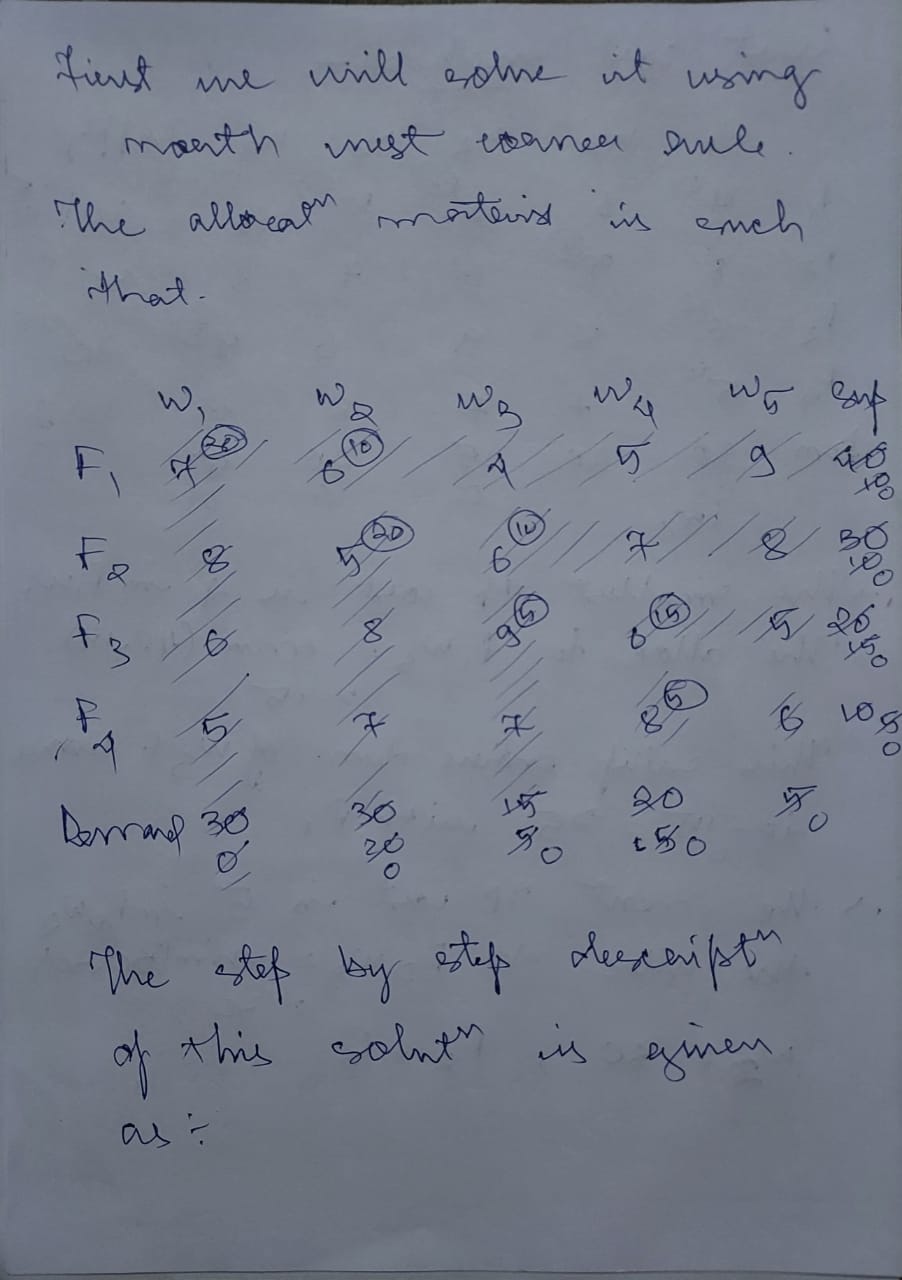 First we will solve it using
north west corner rule.
The allocatⁿ matrix is such
that.
W1 W2 W3 W4 W5 Sup
F1 7 (30) 6 (10) 4 5 9 40 10 0
F2 8 5 (20) 6 (10) 7 8 30 10 0
F3 6 8 9 (5) 6 (15) 5 20 15 0
F4 5 7 7 8 (5) 6 10 5 0
Demand 30 0 30 20 0 15 5 0 20 5 0 5 0
The step by step descriptⁿ
of this solutⁿ is given
as :-